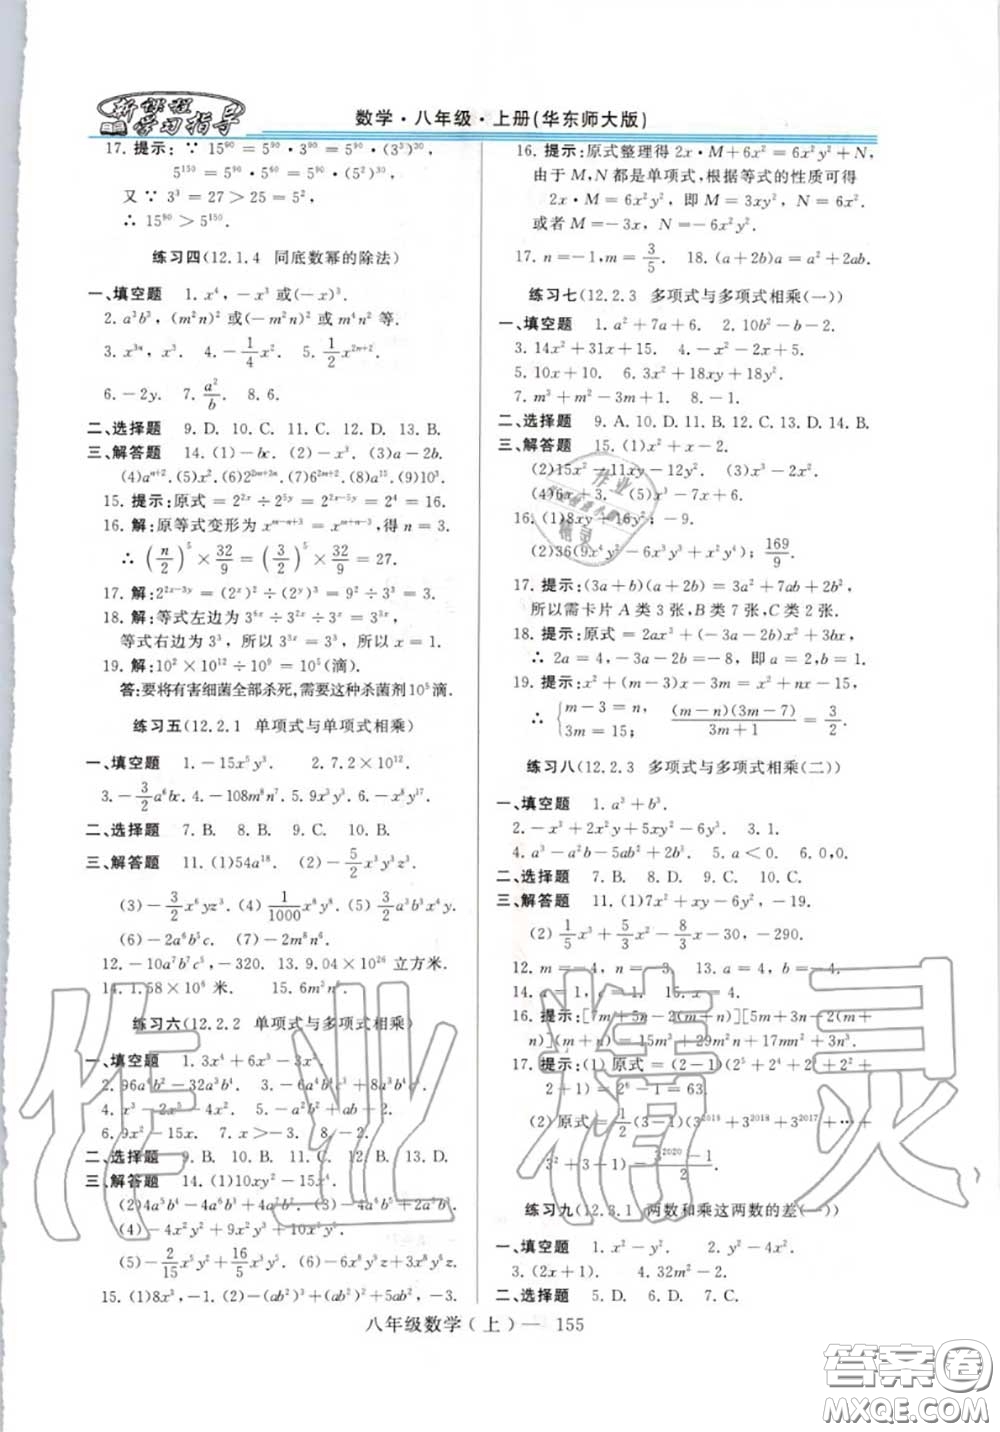 新课程
学习指导
数学·八年级·上册(华东师大版)
17. 提示: ∵ 15⁹⁰=5⁹⁰·3⁹⁰=5⁹⁰·(3³)³⁰,
5¹⁵⁰=5⁹⁰·5⁶⁰=5⁹⁰·(5²)³⁰,
又 ∵ 3³=27>25=5²,
∴ 15⁹⁰>5¹⁵⁰.
练习四(12.1.4 同底数幂的除法)
一、填空题 1. x⁴, -x³ 或(-x)³.
2. a³b³, (m²n)² 或(-m²n)² 或 m⁴n² 等.
3. x³ⁿ, x³. 4. -1/4 x². 5. 1/2 x²ⁿ⁺².
6. -2y. 7. a²/b. 8. 6.
二、选择题 9. D. 10. C. 11. D. 12. D. 13. B.
三、解答题 14. (1)-bc. (2)-x³. (3)a-2b.
(4)aⁿ⁺². (5)x². (6)2²ᵐ⁺³ⁿ. (7)6²ᵐ⁺³. (8)a⁵. (9)10³.
15. 提示:原式=2²ˣ÷2⁵ʸ=2²ˣ⁻⁵ʸ=2⁴=16.
16. 解:原等式变形为 xᵐ⁻ⁿ⁺³=xᵐ⁺ⁿ⁻³,得 n=3.
∴ (n/2)⁵×32/9=(3/2)⁵×32/9=27.
17. 解:2²ˣ⁻³ʸ=(2ˣ)²÷(2ʸ)³=9²÷3³=3.
18. 解:等式左边为 3⁶ˣ÷3²ˣ÷3ˣ=3³ˣ,
等式右边为 3³,所以 3³ˣ=3³,所以 x=1.
19. 解:10²×10¹²÷10⁹=10⁵(滴).
答:要将有害细菌全部杀死,需要这种杀菌剂10⁵滴.
练习五(12.2.1 单项式与单项式相乘)
一、填空题 1. -15x⁵y³. 2. 7.2×10¹².
3. -3/2 a⁶bc. 4. -108m⁸n⁷. 5. 9x³y³. 6. x⁸y¹⁷.
二、选择题 7. B. 8. B. 9. C. 10. D.
三、解答题 11. (1)54a¹⁸. (2)-5/2 x³y³z³.
(3)-3/2 x⁶yz³. (4) 1/1000 x⁸y⁸. (5) 3/2 a³b³x⁴y.
(6)-2a⁶b⁵c. (7)-2m⁸n⁶.
12. -10a⁷b⁷c⁵, -320. 13. 9.04×10²⁶ 立方米.
14. 1.58×10⁸ 米. 15. 6m²n⁵.
练习六(12.2.2 单项式与多项式相乘)
一、填空题 1. 3x⁴+6x³-3x².
2. 96a⁴b²-32a³b⁴. 3. -6x³+2x²y-2x.
4. x³-2x²-4x. 5. -2b²+ab+2.
6. 9x²-15x. 7. x>-3. 8. -2.
二、选择题 9. B. 10. B. 11. C. 12. B. 13. D.
三、解答题 14. (1)10xy²-15x⁴.
(2)4a⁵b⁵-4a⁶b³+4a⁷b².
(4)-4x⁴y²+9x²y⁴-2x²y².
(5)-2/15 x²y+16/5 x²y². (6)-6x³y³z+3x³y⁴z.
15. (1)8x³, -1. (2)-(ab²)³+(ab²)²+5ab², -3.
16. 提示:原式整理得 2x·M+6x²=6x²y²+N,
由于 M,N 都是单项式,根据等式的性质可得
2x·M=6x²y²,即 M=3xy²,N=6x².
或者 M=-3x, N=-6x²y².
17. n=-1, m=3/5. 18. (a+2b)a=a²+2ab.
练习七(12.2.3 多项式与多项式相乘(一))
一、填空题 1. a²+7a+6. 2. 10b²-b-2.
3. 14x²+31x+15. 4. -x²-2x-2.
5. 10x²+9. 6. 3x²+18xy+18y.
7. m³+m²-3m+1. 8. -1.
二、选择题 9. A. 10. D. 11. B. 12. C. 13. D. 14. B.
三、解答题 15. (1)x²+x-2.
(2)15x²-11xy-12y². (3)x³-2x-1.
(4)6x+3. (5)-x²-7x.
16. (1)8xy+16y²; -9.
(2)36(9x⁴y²-6x³y³+x²y⁴); 169/9.
17. 提示:(3a+b)(a+2b)=3a²+7ab+2b²,
所以需卡片 A 类 3 张,B 类 7 张,C 类 2 张.
18. 提示:原式=2ax³+(-3a-2b)x²+3bx,
∴ 2a=4, -3a-2b=-8, 即 a=2, b=1.
19. 提示:x²+(m-3)x-3m=x²+nx-15,
∴ {m-3=n, 3m=15. (m-n)(3m-7)/3m+1=3/2.
练习八(12.2.3 多项式与多项式相乘(二))
一、填空题 1. a³+b³.
2. -x³+2x²y+5xy²-6y³. 3. 1.
4. a³-a²b-5ab²+2b³. 5. a<0. 6. 0,0.
二、选择题 7. B. 8. D. 9. C. 10. C.
三、解答题 11. (1)7x²+xy-6y², -19.
(2) 1/5 x³+5/3 x²-8/3 x-30, -290.
12. m=-4, n=-4. 13. x=-4.
16. 提示:[7m+5n-2(m+n)][5m-2(m+
n)](m+n)=15m³+29m²n+17mn²+3n³.
17. 提示:(1) 原式=(2-1)(2⁵+2⁴+2³+2²+
2+1)=2⁶-1=63.
(2)原式=1/2(3-1)(3²⁰¹⁹+3²⁰¹⁸+3²⁰¹⁷+…+
3²⁰²⁰-1/2.
练习九(12.3.1 两数和乘这两数的差(一))
一、填空题 1. x²-y². 2. y²-4x².
3. (2x+1). 4. 32m²-2.
二、选择题 5. D. 6. C. 7. D. 8. B.
八年级数学(上)— 155
作业精灵
答案圈
MXQE.COM